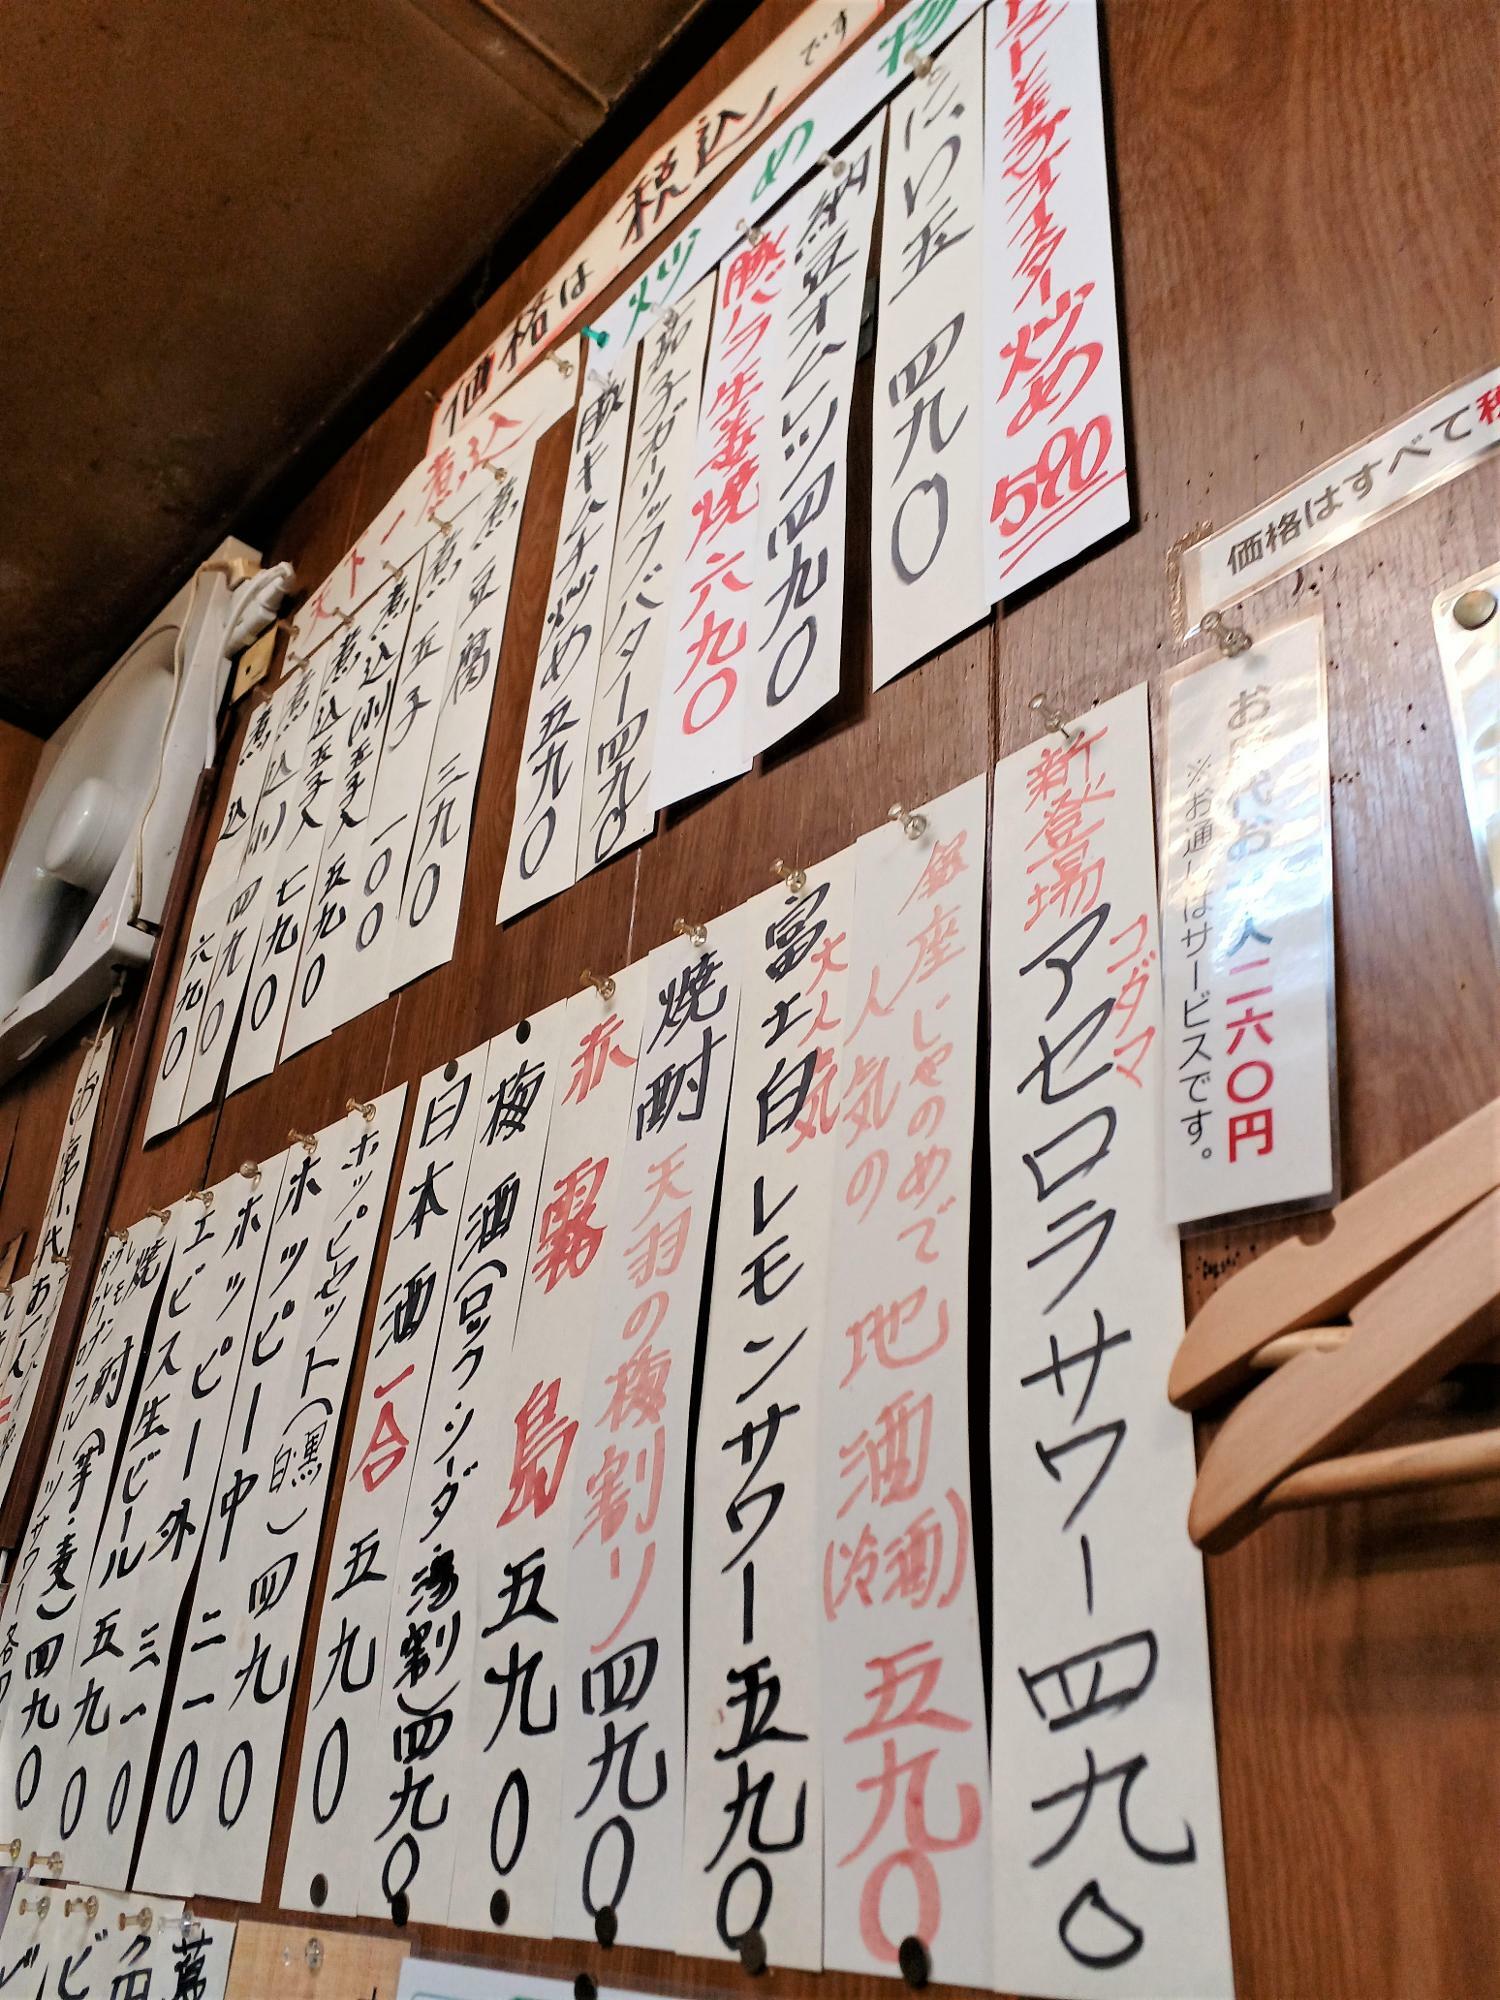 価格は税込です
炒め物
トマトと玉子オイスター炒め 590
にら玉 四九〇
納豆オムレツ 四九〇
豚バラ生姜焼 六九〇
茄子ガーリックバター 四九〇
豚キムチ炒め 五九〇
煮込
煮豆腐 三九〇
煮玉子 一〇〇
煮込(小)玉子入 五九〇
煮込玉子入 七九〇
煮込(小) 四九〇
煮込 六九〇
価格はすべて税
お席代お一人二六〇円
※お通しはサービスです。
新登場
コダマ
アセロラサワー 四九〇
銀座じゃのめで
人気の
地酒(冷酒) 五九〇
大人気
富士白レモンサワー 五九〇
焼酎 天羽の梅割り 四九〇
赤霧島 五九〇
梅酒(ロック・ソーダ・湯割) 四九〇
日本酒 一合 五九〇
ホッピーセット(黒白) 四九〇
ホッピー中 二一〇
ホッピー外 三一〇
エビス生ビール 五九〇
焼酎(芋・麦) 四九〇
レモン
グレープフルーツサワー
お席代お一人